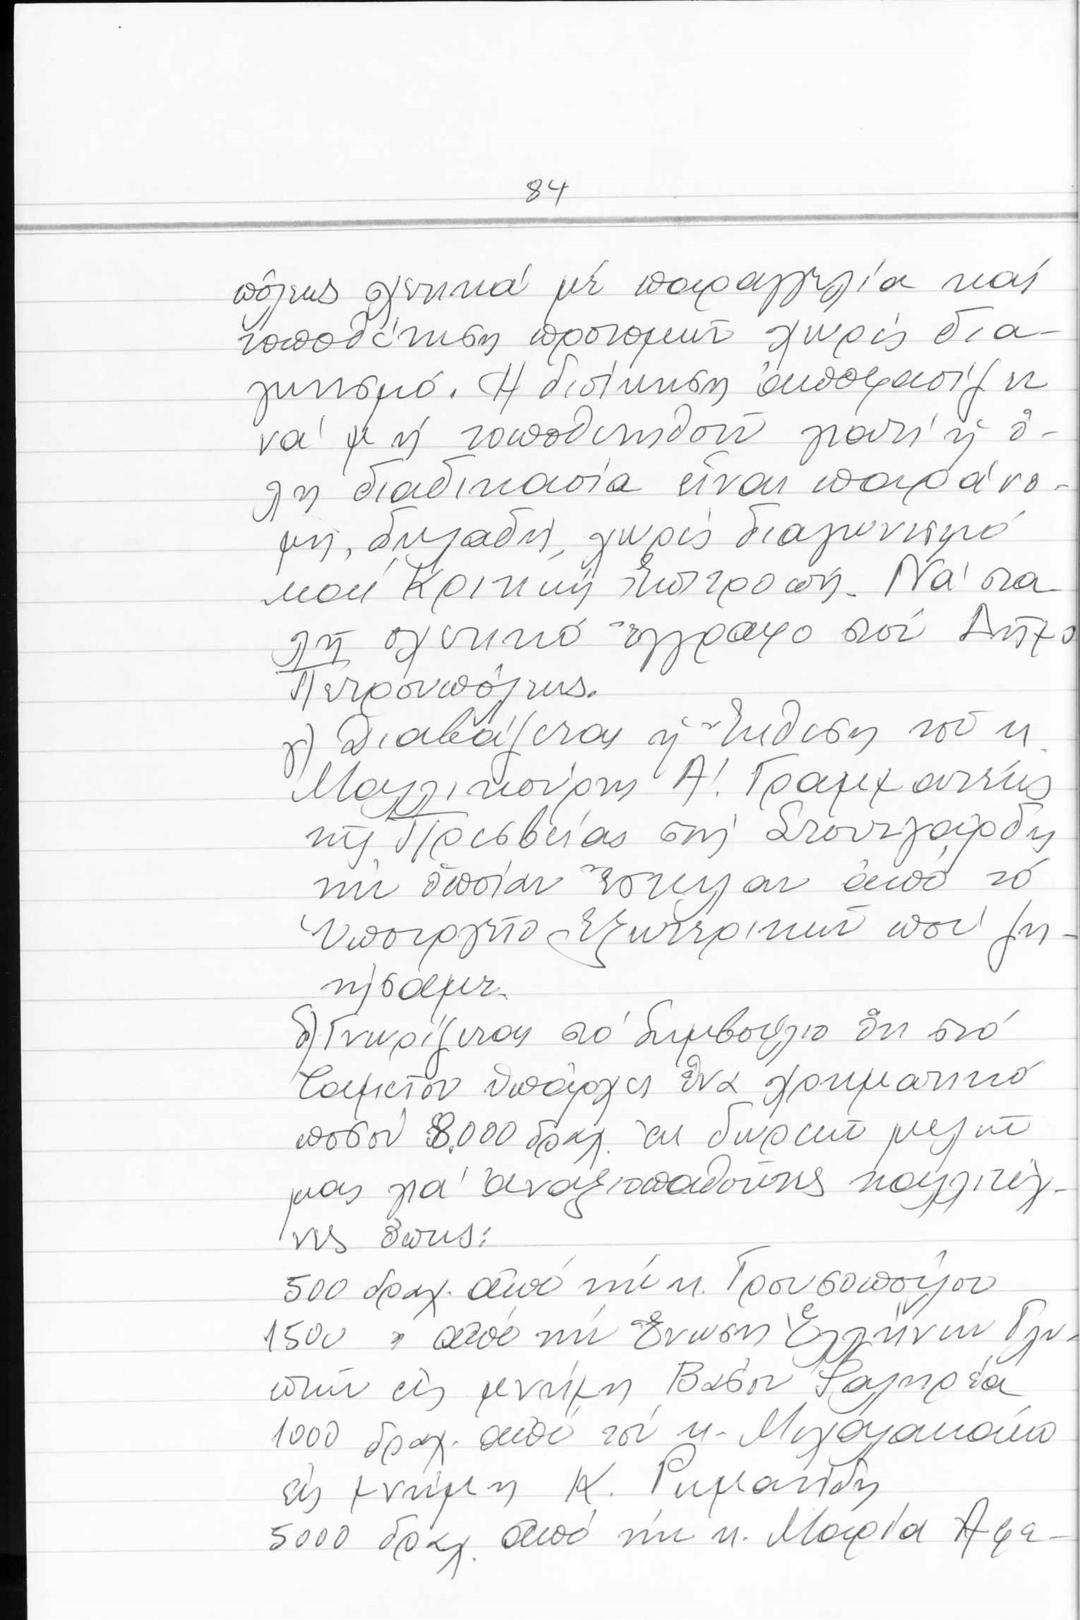 84
πόλεως σχετικά μέ παραγγελία καί
τοποθέτηση προτομῶν χωρίς δια-
γωνισμό. Ἡ διοίκηση ἀποφασίζει
νά μή τοποθετηθοῦν γιατί ἡ ὅ-
λη διαδικασία εἶναι παράνο-
μη, δηλαδή, χωρίς διαγωνισμό
καί Κριτική Ἐπιτροπή. Νά στα
λῆ σχετικό ἔγγραφο στό Δῆμο
Πετρουπόλεως.
γ) Διαβάζεται ἡ Ἔκθεση τοῦ κ.
Α! Γραμματέως
τῆς Πρεσβείας στή Στουτγάρδη
τήν ὁποίαν ἔστειλαν ἀπό τό
Ὑπουργεῖο Ἐξωτερικῶν πού ζη-
τήσαμε.
δ) Γνωρίζεται στό Συμβούλιο ὅτι στό
Ταμεῖον ὑπάρχει ἕνα χρηματικό
ποσόν 8.000 δραχ. ἐκ δωρεῶν μελῶν
μας γιά ἀναξιοπαθοῦντες καλλιτέχ-
νες ὅπως:
500 δραχ. ἀπό τήν κ. Γρουσοπούλου
1500 " ἀπό τήν Ἕνωση Ἑλλήνων Γλυ-
πτῶν εἰς μνήμη Βάσου Φαληρέα
1000 δραχ. ἀπό τόν κ.
εἰς μνήμη Κ.
5000 δραχ. ἀπό τήν κ. Μαρία